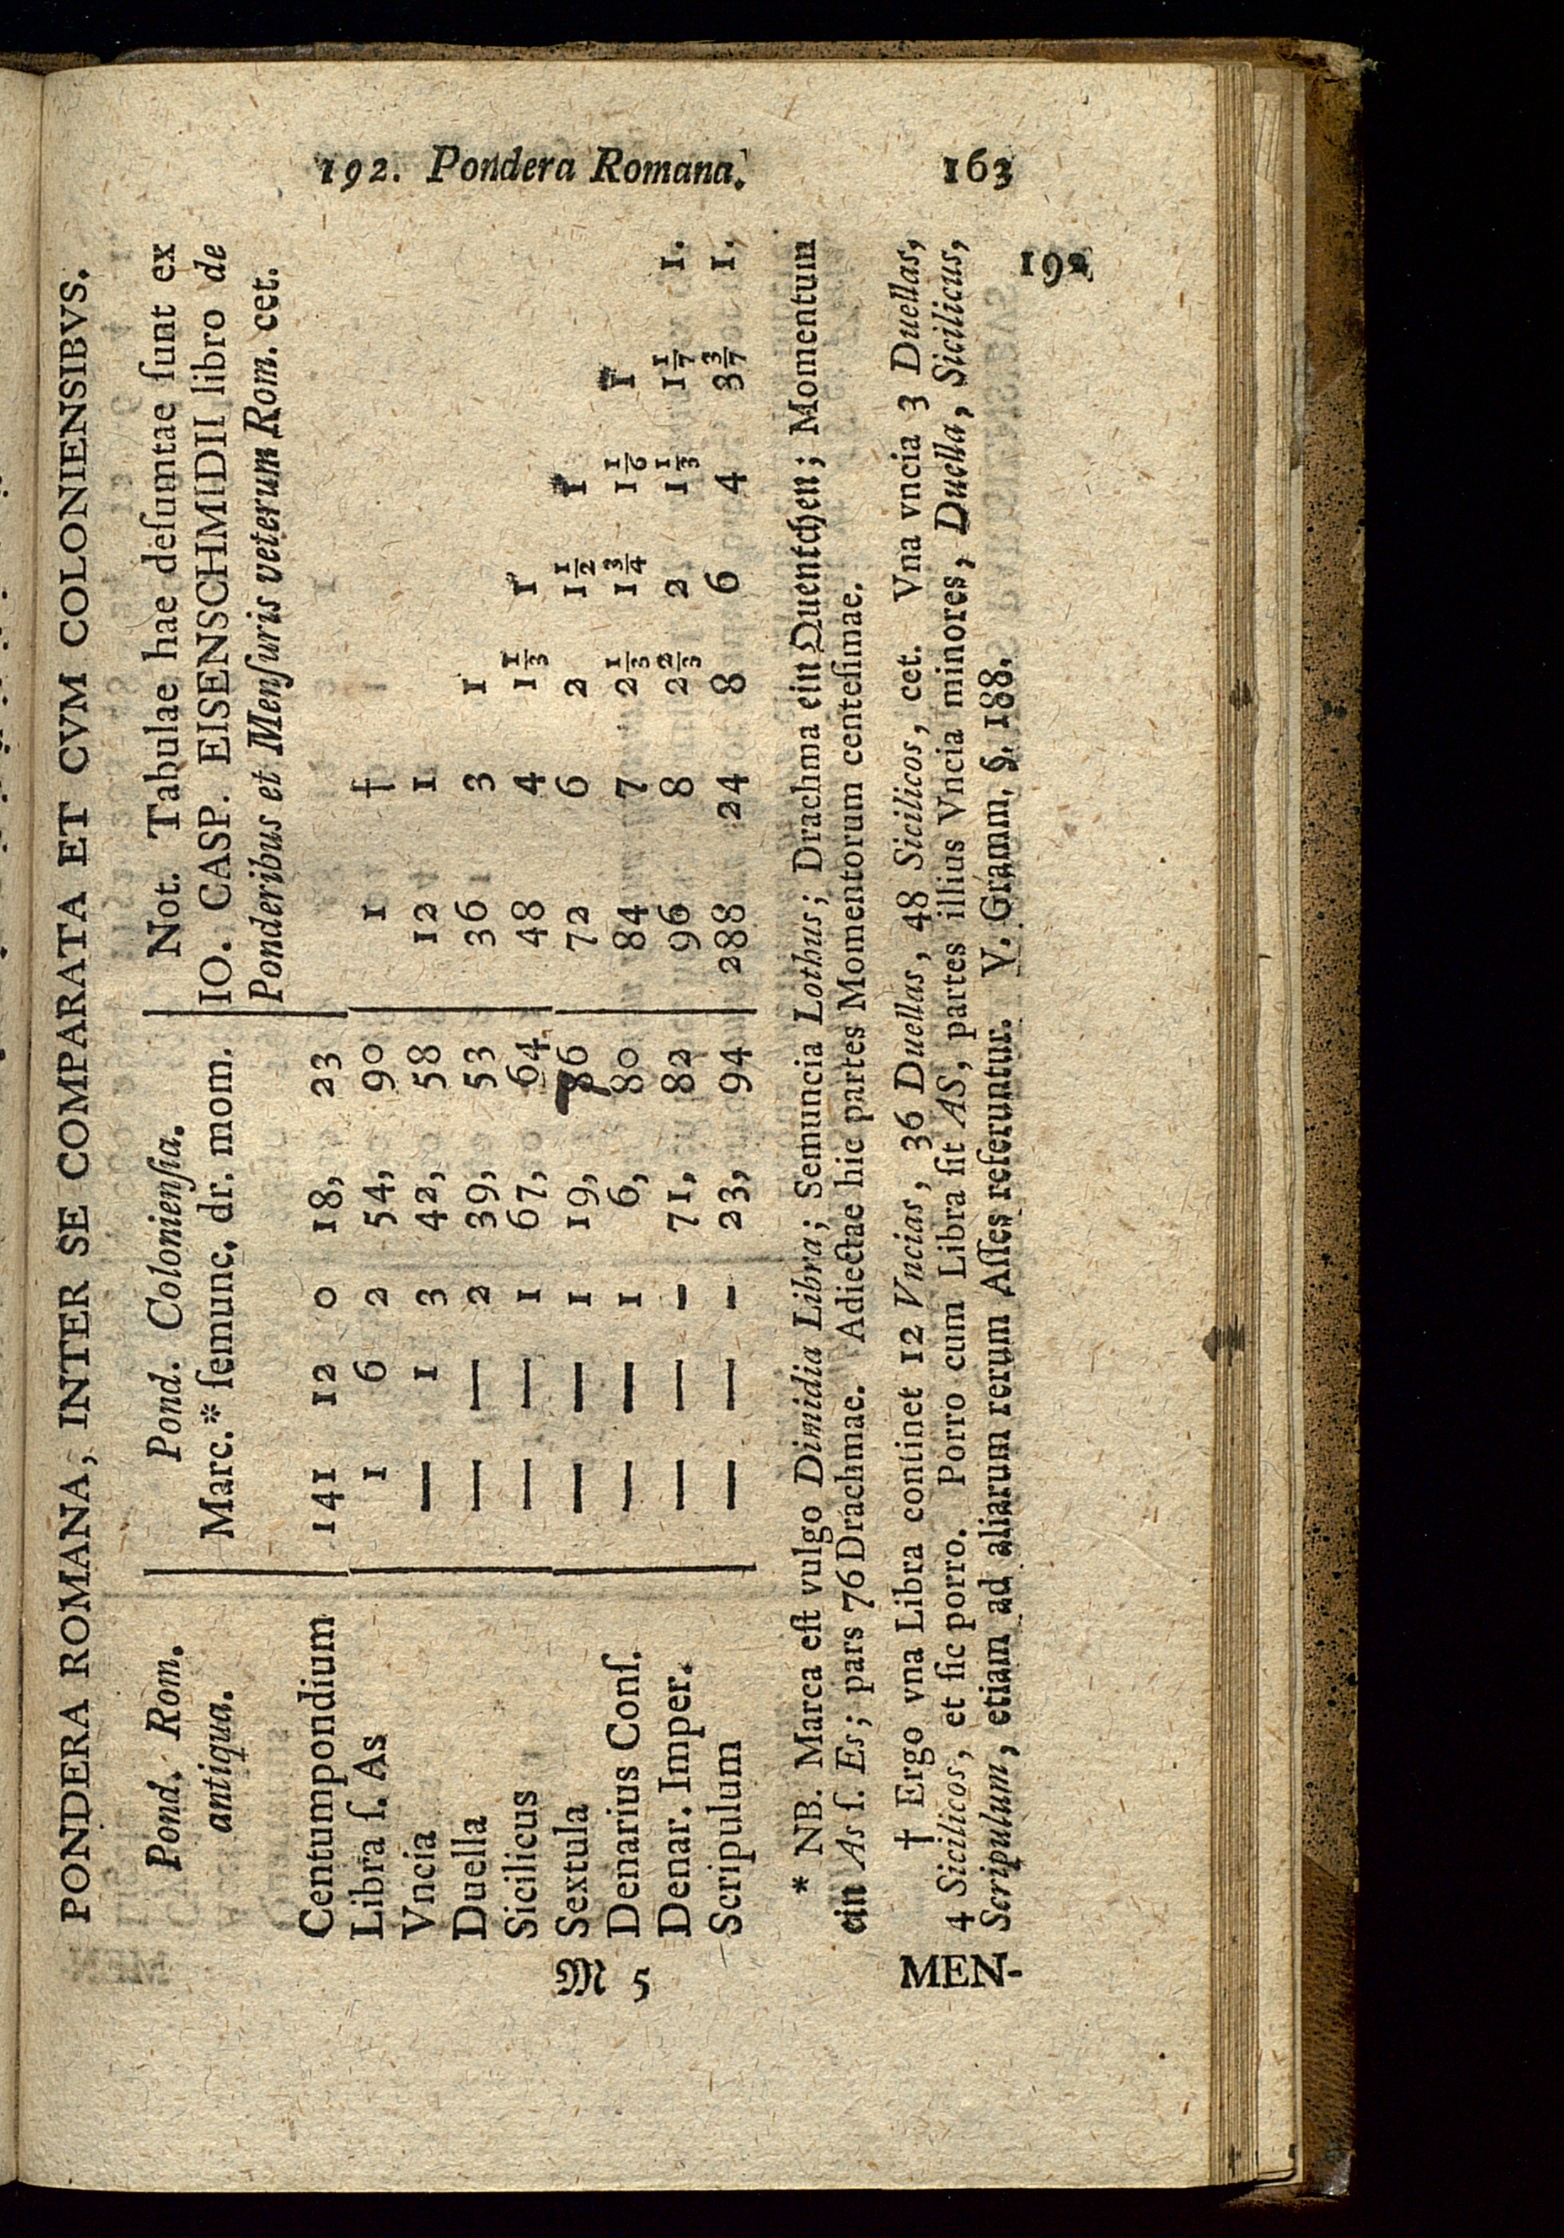 192. Pondera Romana. 163
PONDERA ROMANA, INTER SE COMPARATA ET CVM COLONIENSIBVS.
Pond. Rom. antiqua.
Pond. Colonienſia.
Marc.* ſemunc. dr. mom.
Not. Tabulae hae deſumtae ſunt ex
IO. CASP. EISENSCHMIDII libro de
Ponderibus et Menſuris veterum Rom. cet.
Centumpondium 141 12 0 18, 23
Libra ſ. As 1 6 2 54, 90 1 †
Vncia — 1 3 42, 58 12 1
Duella — — 2 39, 53 36 3 1
Sicilicus — — 1 67, 64. 48 4 1 1/3 1
Sextula — — 1 19, 76 72 6 2 1 1/2 1
Denarius Conſ. — — 1 6, 80 84 7 2 1/3 1 3/4 1 1/6 1
Denar. Imper. — — – 71, 82 96 8 2 2/3 2 1 1/3 1 1/7 1.
Scripulum — — – 23, 94 288 24 8 6 4 3 3/7 1.
* NB. Marca eſt vulgo Dimidia Libra; Semuncia Lothus; Drachma ein Quentchen; Momentum
ein As ſ. Es; pars 76 Drachmae. Adiectae hic partes Momentorum centeſimae.
† Ergo vna Libra continet 12 Vncias, 36 Duellas, 48 Sicilicos, cet. Vna vncia 3 Duellas,
4 Sicilicos, et ſic porro. Porro cum Libra ſit AS, partes illius Vncia minores, Duella, Sicilicus,
Scripulum, etiam ad aliarum rerum Aſſes referuntur. V. Gramm. §. 188.
M 5
MEN-
192